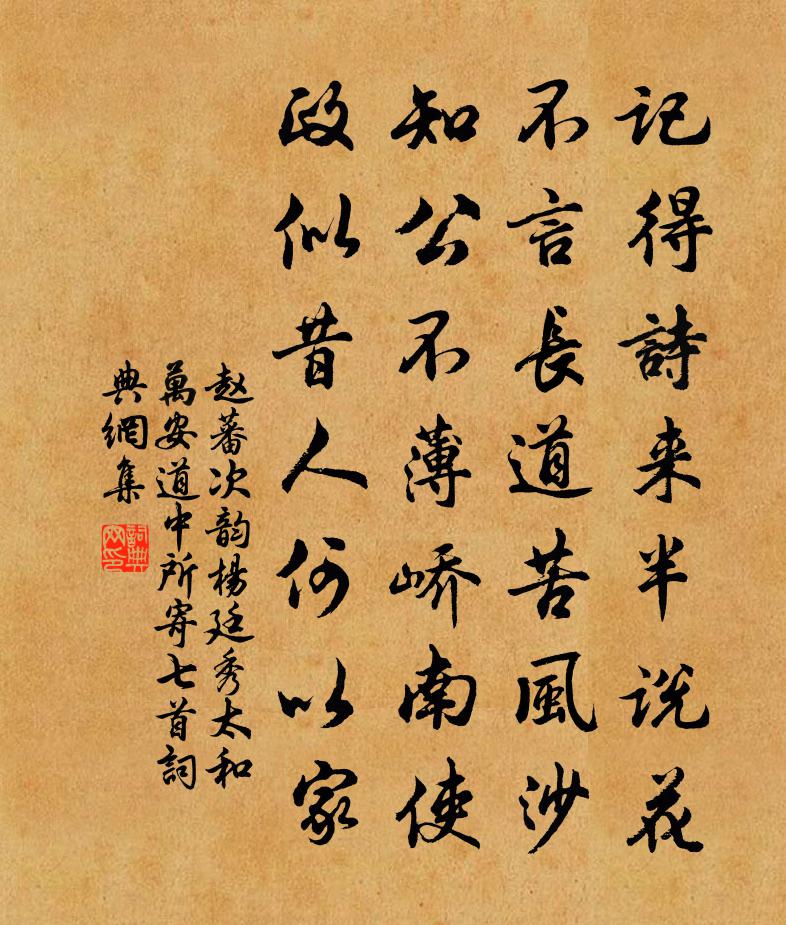 记得詩来半说花
不言長道苦風沙
知公不薄峤南使
政似昔人何以家
赵蕃次韵楊廷秀太和
萬安道中所寄七首詞
典網集
詞典网印